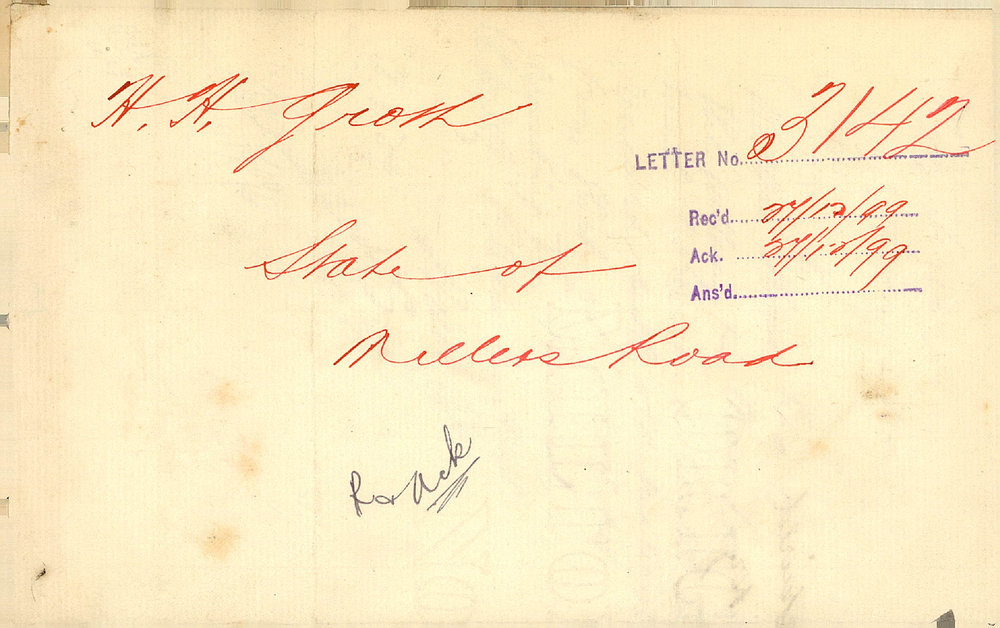 H. H. Groth
LETTER No. 3142
Rec'd. 27/12/99
Ack. 27/12/99
Ans'd.
State of
Millers Road
R & Ack